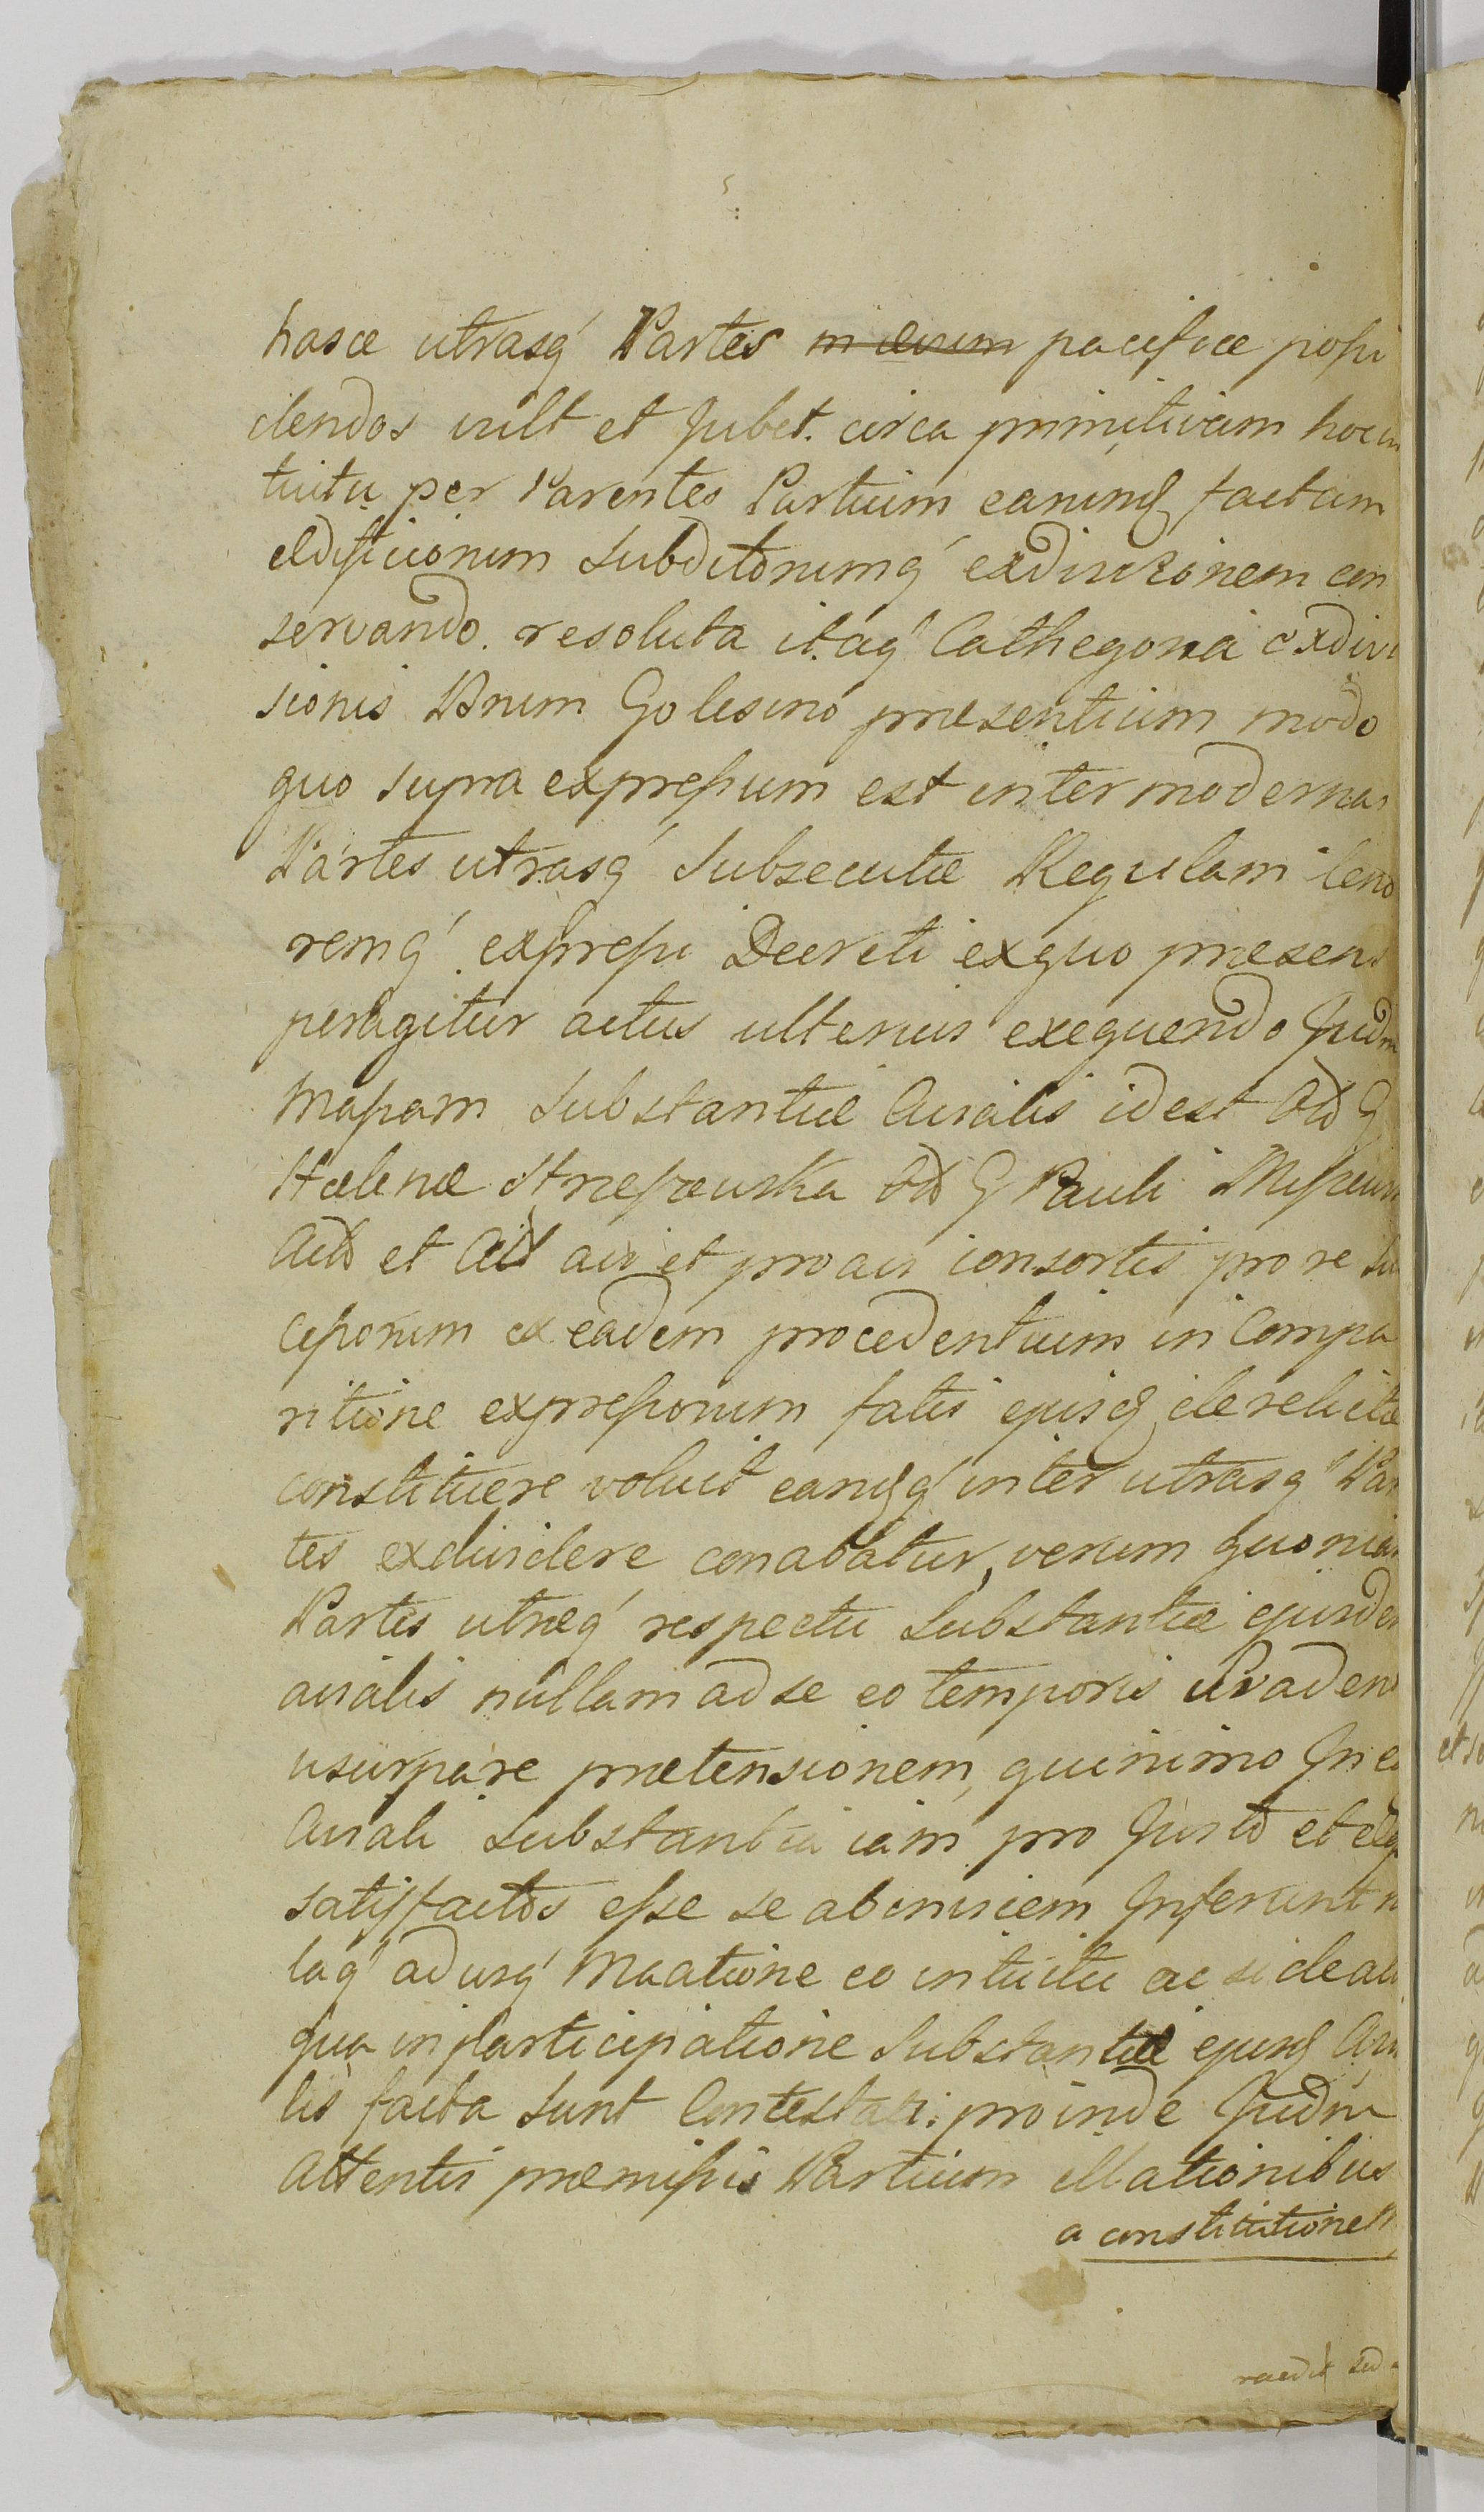 hasce utrasq́ Partes in ævum pacifice possi
dendos vult et Jubet. circa primitivam hoc in
tuitu per Parentes Partium earumq factam
ædificiorum Subditorumq́ exdivisionem con
servando. resoluta itaq́ Cathegoria exdivi
sionis Bnum Golesino præsentium modo
quo supra expressum est inter modernas
Partes utrasq́ Subsecutæ Regulam teno
remq́ expressi Decreti exquo præsens
peragitur actus ulterius exequendo Judm
Massam Substantiæ Avialis idest
Hælenæ G Pauli
et avi et proavi consortis pro re Su
cessorum ex eadem procedentium in Compa
ritione expressorum fatis ejusq derelictæ
constituere voluit eamq́ inter utrasq́ Par
tes exdividere conabatur, verum quoniam
Partes utræq́ respectu Substantiæ ejusdem
avialis nullam ad se eo temporis
usurpare prætensionem, quinimo In ea
Aviali Substantia iam pro Justo et
satisfactos esse se abinvicem Inferunt
laq́ adusq́ eo intuitu ac si de ali
qua inparticipatione Substantiæ ejusq Avia
lis facta sunt Contestati: proinde Judm
attentis præmissis Partium illationibus
a constitutione
sed